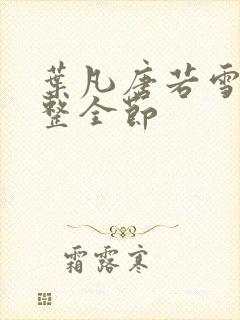 葉凡唐若雪
整全節
霜露寒